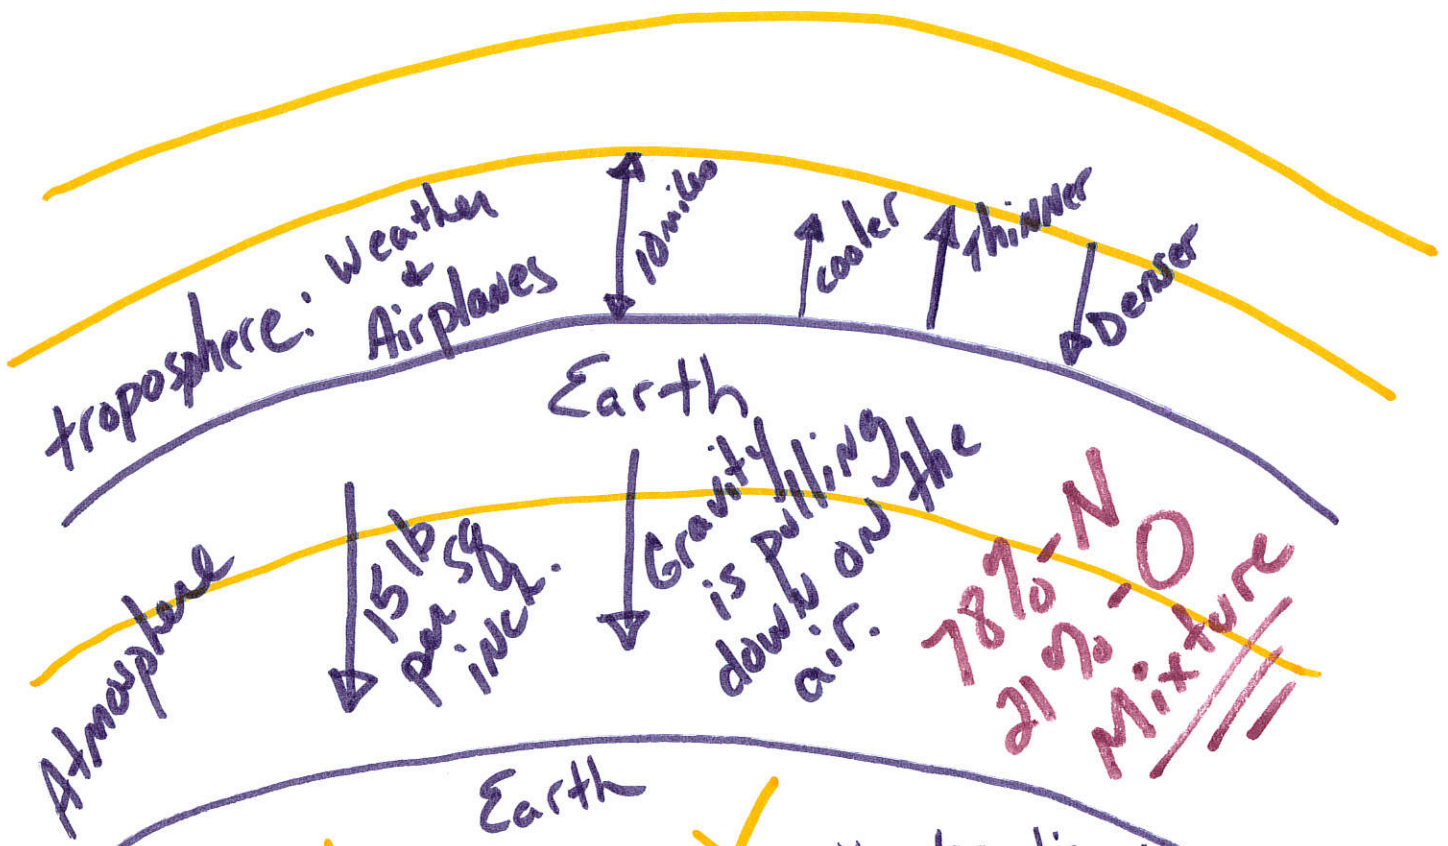 troposphere: Weather
+
Airplanes
10 miles
cooler
thinner
Denser
Earth
Atmosphere
15 lb
per sq
inch.
Gravity
is pulling
down on the
air.
78% - N
21% - O
Mixture
Earth